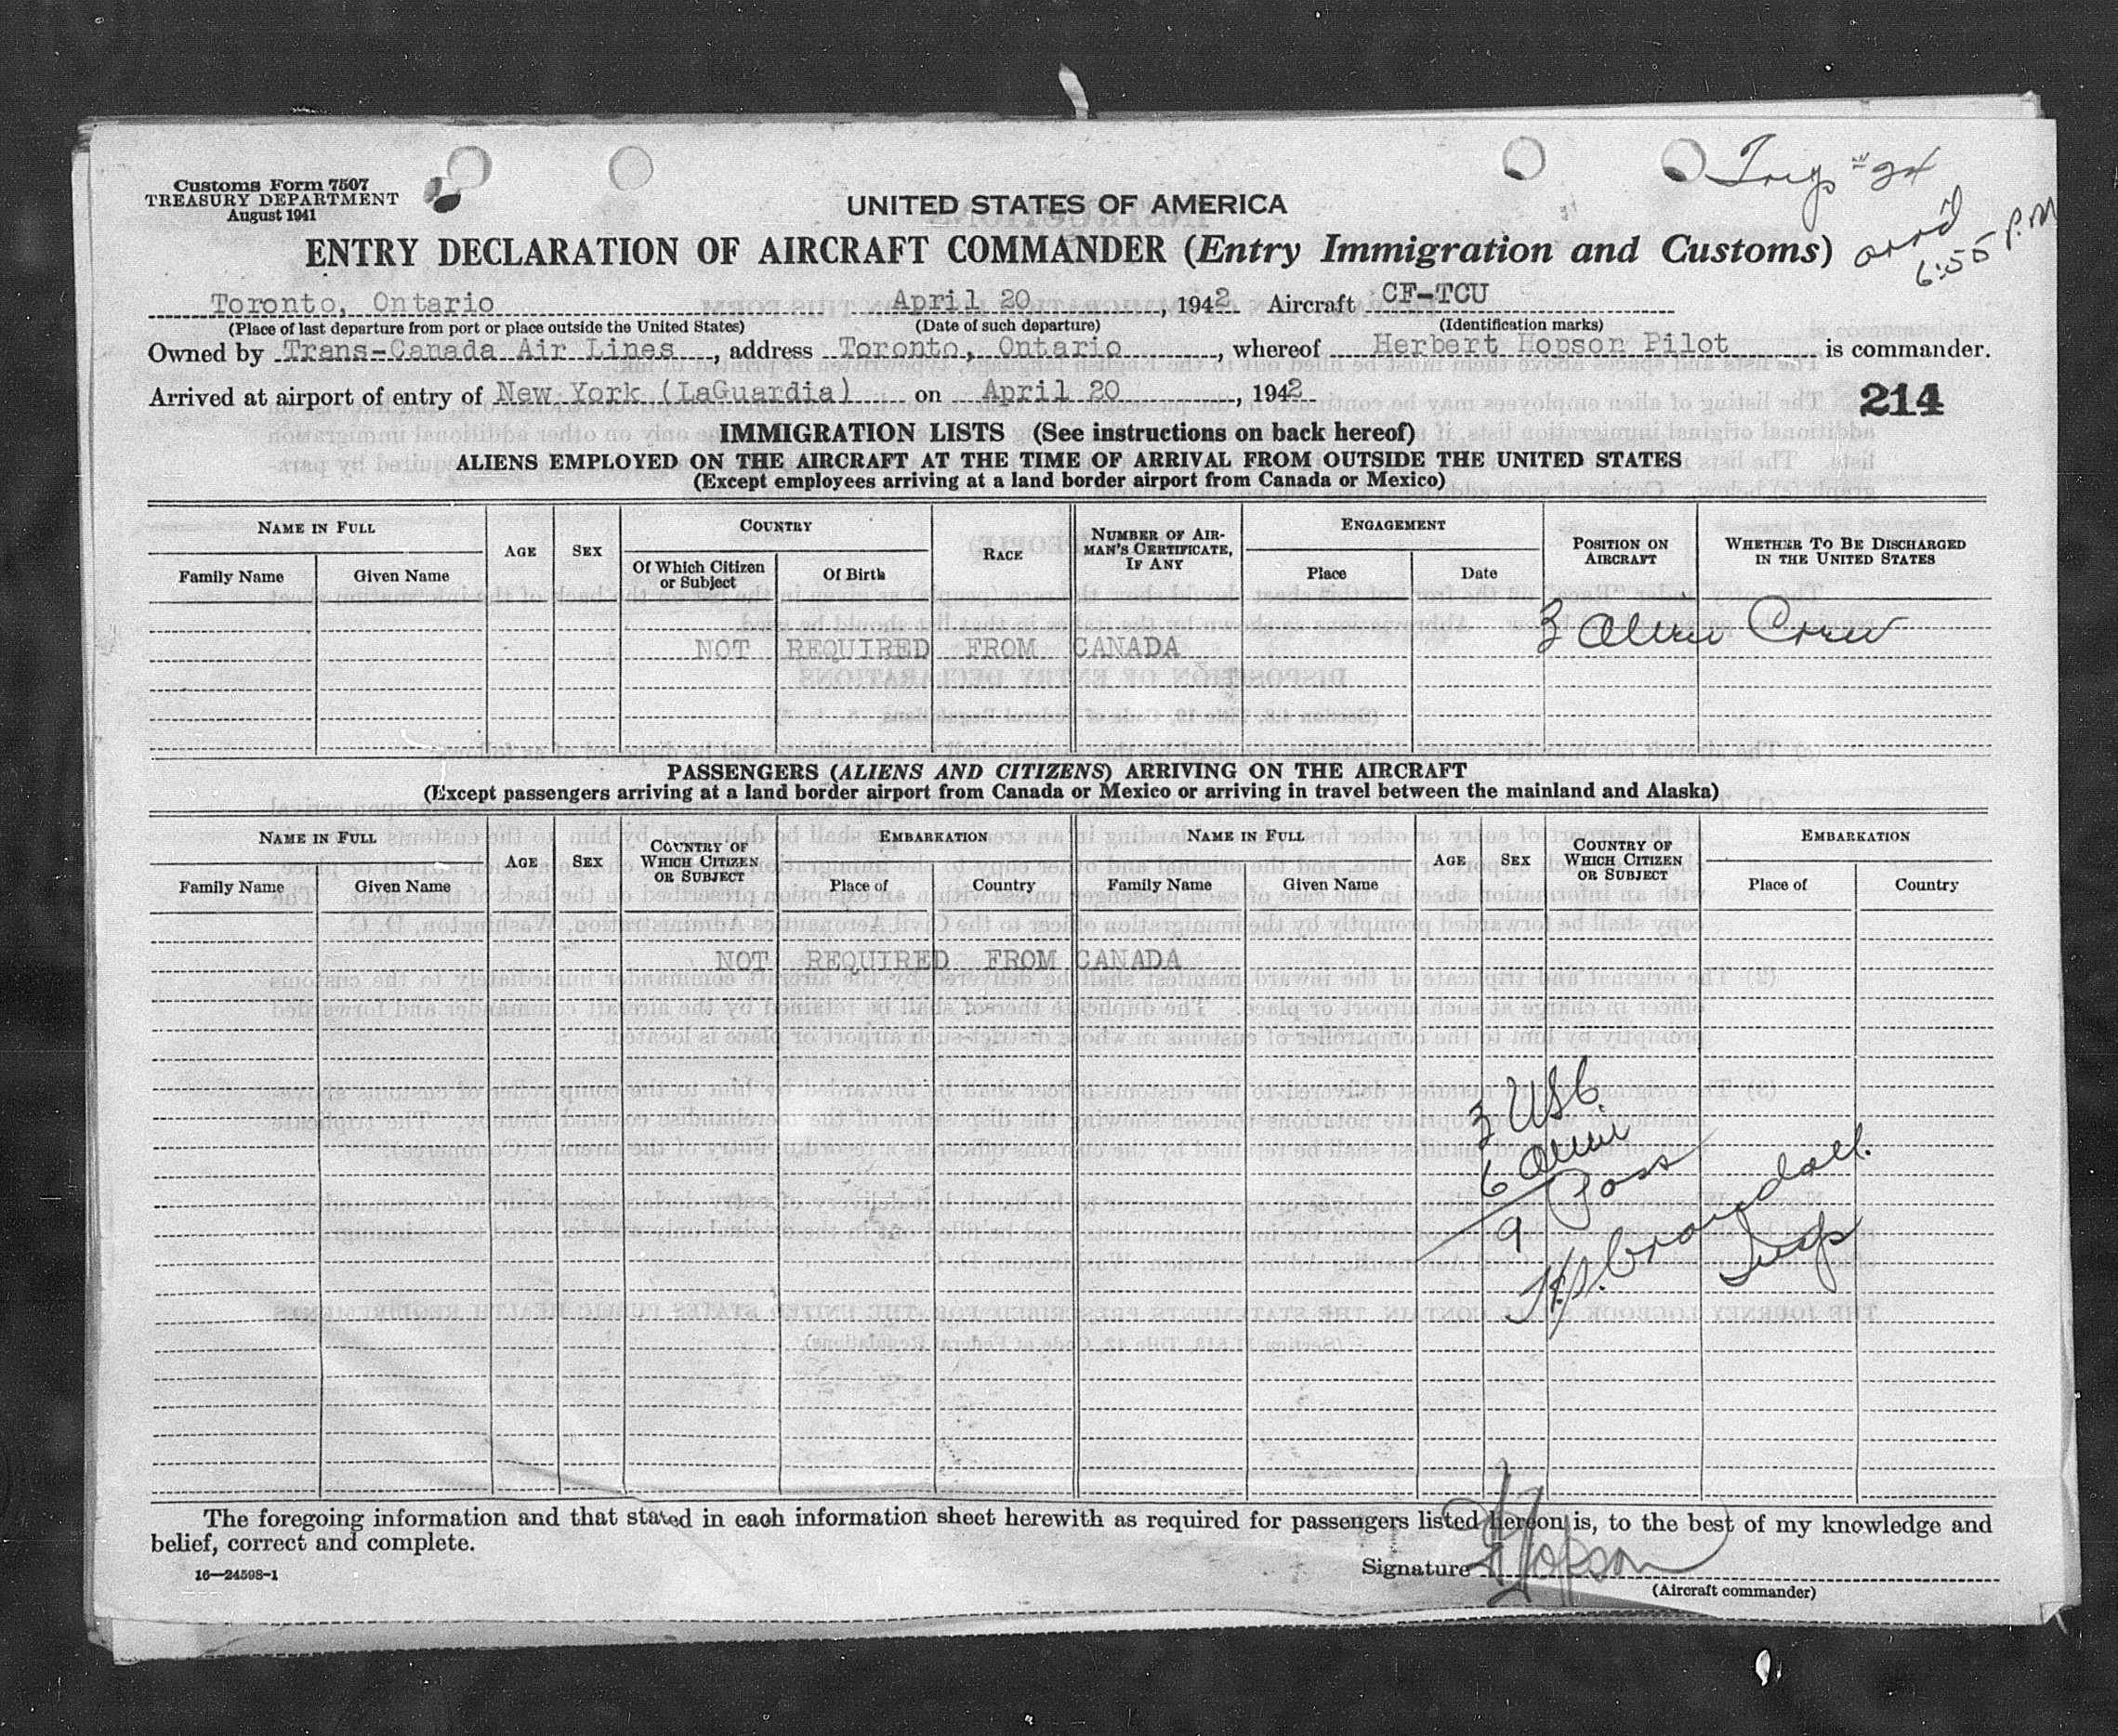 Customs Form 7507
TREASURY DEPARTMENT
August 1941
Trip #24
arr'd
6:55 P.M
UNITED STATES OF AMERICA
ENTRY DECLARATION OF AIRCRAFT COMMANDER (Entry Immigration and Customs)
Toronto, Ontario April 20, 1942 Aircraft CF-TCU
(Place of last departure from port or place outside the United States) (Date of such departure) (Identification marks)
Owned by Trans-Canada Air Lines, address Toronto, Ontario, whereof Herbert Hopson Pilot is commander.
Arrived at airport of entry of New York (LaGuardia) on April 20, 1942
214
IMMIGRATION LISTS (See instructions on back hereof)
ALIENS EMPLOYED ON THE AIRCRAFT AT THE TIME OF ARRIVAL FROM OUTSIDE THE UNITED STATES
(Except employees arriving at a land border airport from Canada or Mexico)
NAME IN FULL
Family Name Given Name
AGE
SEX
COUNTRY
Of Which Citizen or Subject Of Birth
RACE
NUMBER OF AIRMAN'S CERTIFICATE, IF ANY
ENGAGEMENT
Place Date
POSITION ON AIRCRAFT
WHETHER TO BE DISCHARGED IN THE UNITED STATES
3 Alien Crew
NOT REQUIRED FROM CANADA
PASSENGERS (ALIENS AND CITIZENS) ARRIVING ON THE AIRCRAFT
(Except passengers arriving at a land border airport from Canada or Mexico or arriving in travel between the mainland and Alaska)
NAME IN FULL
Family Name Given Name
AGE
SEX
COUNTRY OF WHICH CITIZEN OR SUBJECT
EMBARKATION
Place of Country
NAME IN FULL
Family Name Given Name
AGE
SEX
COUNTRY OF WHICH CITIZEN OR SUBJECT
EMBARKATION
Place of Country
NOT REQUIRED FROM CANADA
3 USC.
6 Alien
9 Pass
Crandall
Insp
The foregoing information and that stated in each information sheet herewith as required for passengers listed hereon is, to the best of my knowledge and
belief, correct and complete.
16—24598-1
Signature H Hopson
(Aircraft commander)